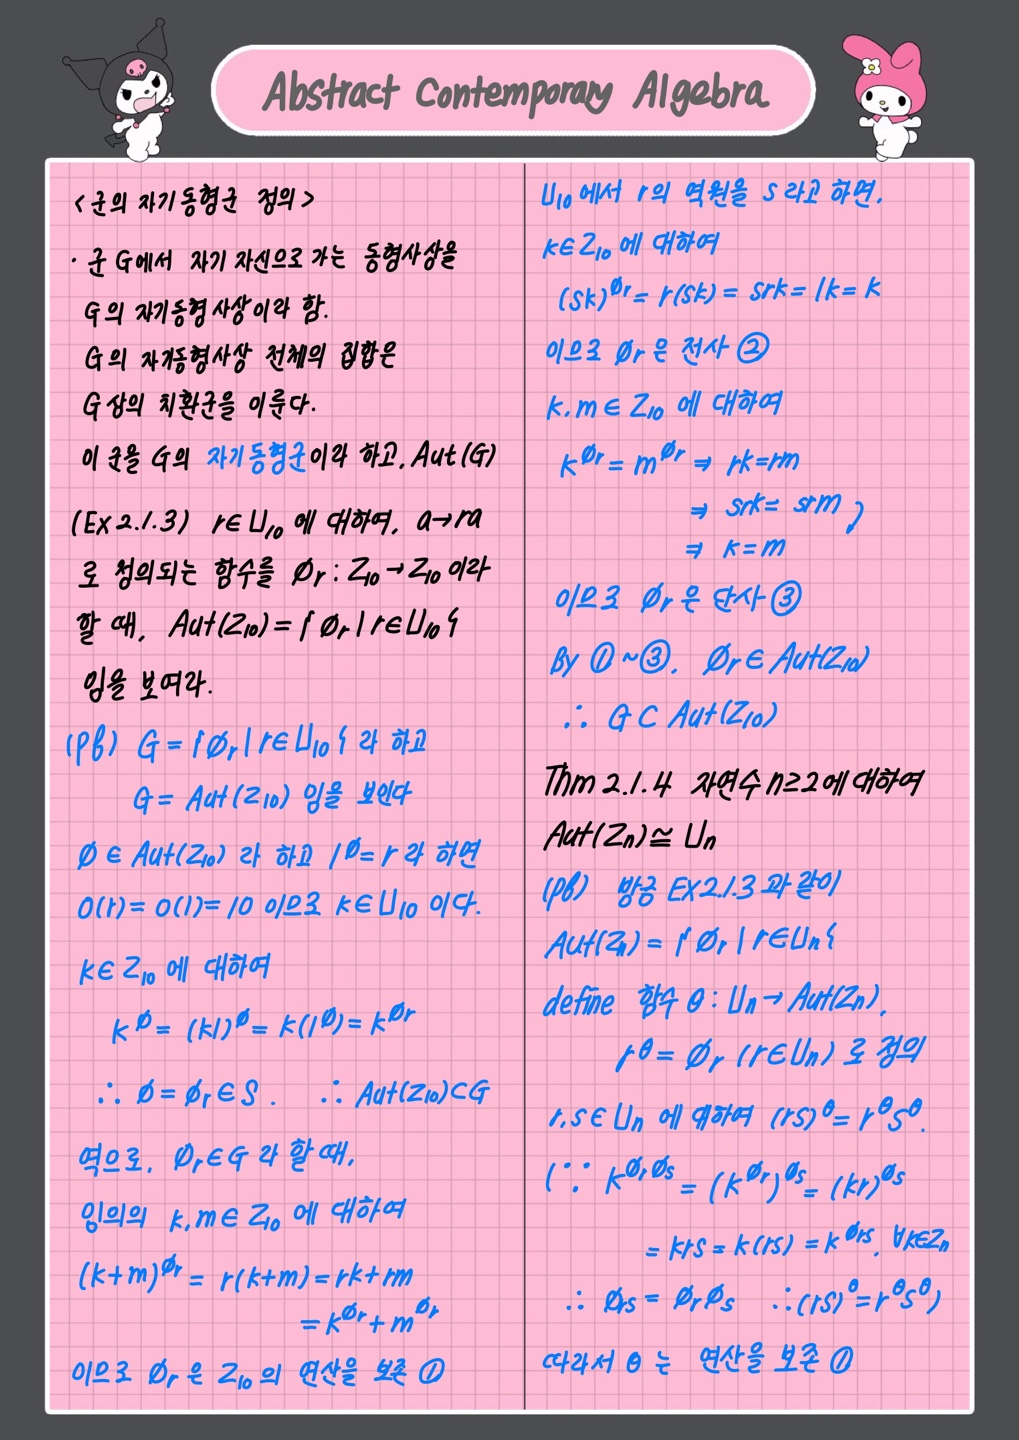 Abstract Contemporary Algebra
<군의 자기동형군 정의>
· 군 G에서 자기 자신으로 가는 동형사상을
G의 자기동형사상이라 함.
G의 자기동형사상 전체의 집합은
G상의 치환군을 이룬다.
이 군을 G의 자기동형군이라 하고, Aut(G)
(Ex 2.1.3) r∈U₁₀ 에 대하여, a→ra
로 정의되는 함수를 Ør : Z₁₀→Z₁₀ 이라
할 때, Aut(Z₁₀) = { Ør | r∈U₁₀ }
임을 보여라.
(pf) G = { Ør | r∈U₁₀ } 라 하고
G = Aut(Z₁₀) 임을 보인다
Ø ∈ Aut(Z₁₀) 라 하고 1^Ø = r 라 하면
o(r) = o(1) = 10 이므로 k∈U₁₀ 이다.
k∈Z₁₀ 에 대하여
k^Ø = (k1)^Ø = k(1^Ø) = k^Ør
∴ Ø = Ør ∈ S . ∴ Aut(Z₁₀)⊂G
역으로, Ør∈G 라 할 때,
임의의 k,m ∈ Z₁₀ 에 대하여
(k+m)^Ør = r(k+m) = rk+rm
= k^Ør + m^Ør
이므로 Ør 은 Z₁₀의 연산을 보존 ①
U₁₀에서 r의 역원을 s라고 하면,
k∈Z₁₀에 대하여
(sk)^Ør = r(sk) = srk = 1k = k
이므로 Ør은 전사 ②
k,m ∈ Z₁₀ 에 대하여
k^Ør = m^Ør ⇒ rk=rm
⇒ srk = srm
⇒ k=m
이므로 Ør은 단사 ③
By ①~③, Ør ∈ Aut(Z₁₀)
∴ G ⊂ Aut(Z₁₀)
Thm 2.1.4 자연수 n≥2에 대하여
Aut(Zn) ≅ Un
(pf) 방금 EX2.1.3과 같이
Aut(Zn) = { Ør | r∈Un }
define 함수 θ : Un → Aut(Zn),
r^θ = Ør (r∈Un) 로 정의
r,s ∈ Un 에 대하여 (rs)^θ = r^θ s^θ.
(∵ k^ØrØs = (k^Ør)^Øs = (kr)^Øs
= krs = k(rs) = k^Ørs, ∀k∈Zn
∴ Ørs = ØrØs ∴ (rs)^θ = r^θ s^θ)
따라서 θ는 연산을 보존 ①